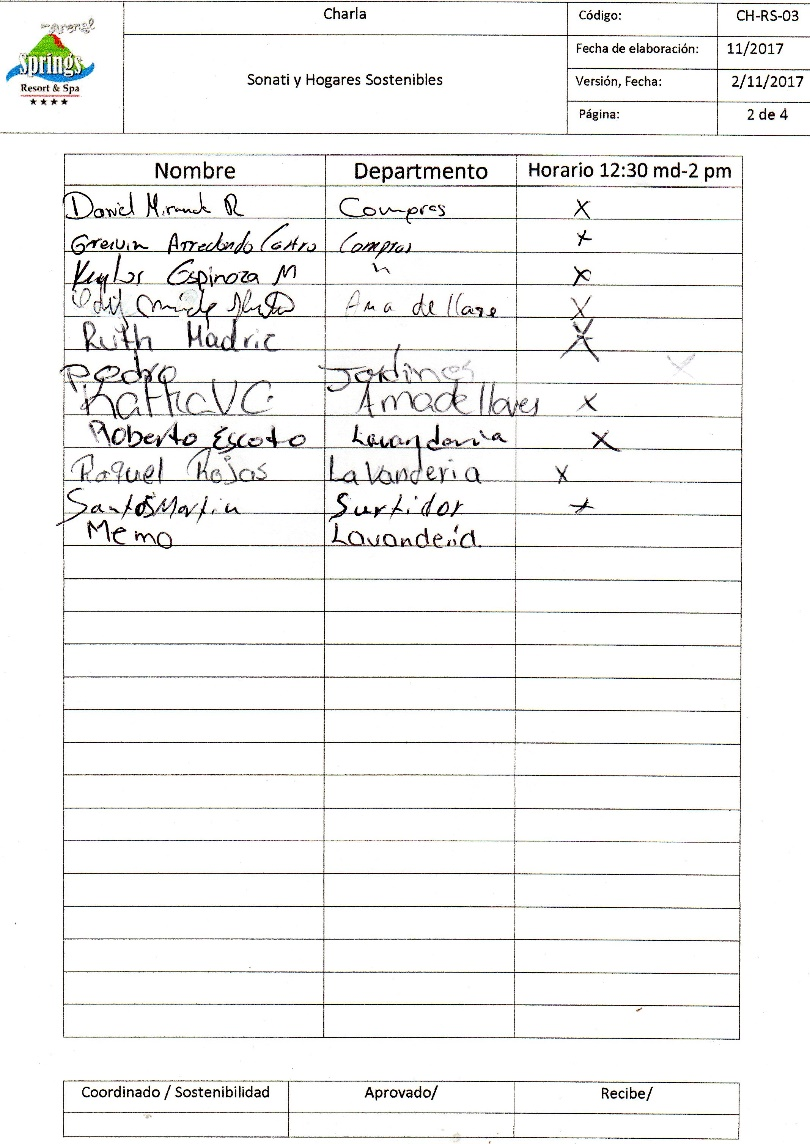 Arenal
Springs
Resort & Spa
Charla
Sonati y Hogares Sostenibles
Código: CH-RS-03
Fecha de elaboración: 11/2017
Versión, Fecha: 2/11/2017
Página: 2 de 4
Nombre Departmento Horario 12:30 md-2 pm
Daniel Miranda R Compras X
Greivin Arredondo Castro Compras X
Keylor Espinoza M " X
Ama de llave X
Ruth Madric X
Pedro Jardines X
Kattia VC Ama de llaves X
Roberto Escoto Lavanderia X
Raquel Rojas LaVanderia X
Santos Martin Surtidor X
Memo Lavanderia
Coordinado / Sostenibilidad Aprovado/ Recibe/